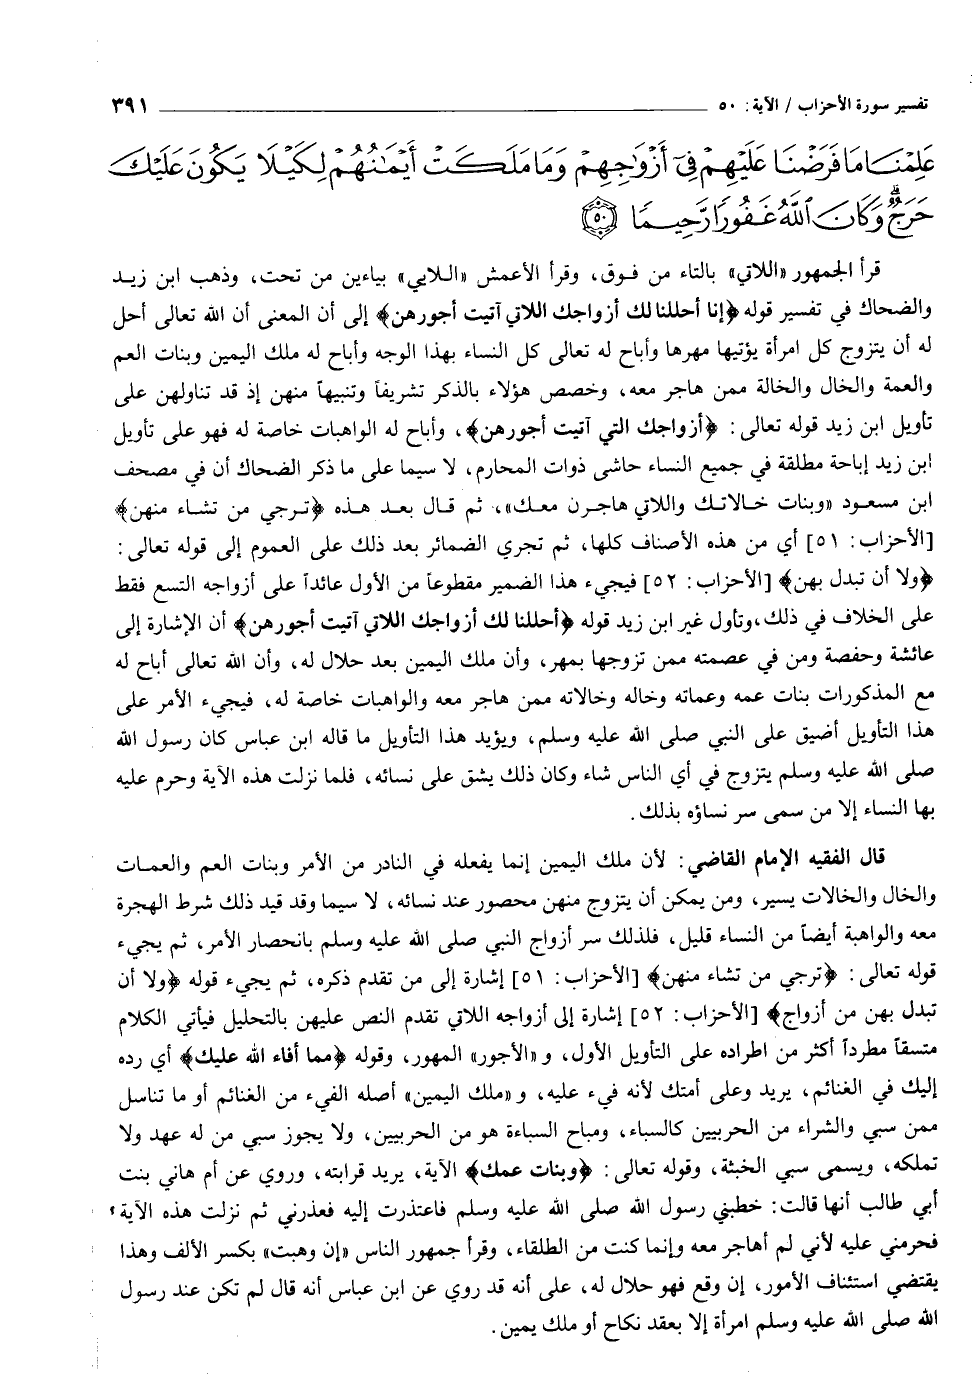 تفسير سورة الأحزاب / الآية: ٥٠ ٣٩١
عَلِمْنَا مَا فَرَضْنَا عَلَيْهِمْ فِىٓ أَزْوَٰجِهِمْ وَمَا مَلَكَتْ أَيْمَٰنُهُمْ لِكَيْلَا يَكُونَ عَلَيْكَ
حَرَجٌ ۗ وَكَانَ ٱللَّهُ غَفُورًا رَّحِيمًا ٥٠
قرأ الجمهور «اللاتي» بالتاء من فوق، وقرأ الأعمش «اللايي» بياءين من تحت، وذهب ابن زيد
والضحاك في تفسير قوله ﴿إنا أحللنا لك أزواجك اللاتي آتيت أجورهن﴾ إلى أن المعنى أن الله تعالى أحل
له أن يتزوج كل امرأة يؤتيها مهرها وأباح له تعالى كل النساء بهذا الوجه وأباح له ملك اليمين وبنات العم
والعمة والخال والخالة ممن هاجر معه، وخصص هؤلاء بالذكر تشريفاً وتنبيهاً منهن إذ قد تناولهن على
تأويل ابن زيد قوله تعالى: ﴿أزواجك التي آتيت أجورهن﴾، وأباح له الواهبات خاصة له فهو على تأويل
ابن زيد إباحة مطلقة في جميع النساء حاشى ذوات المحارم، لا سيما على ما ذكر الضحاك أن في مصحف
ابن مسعود «وبنات خالاتك واللاتي هاجرن معك»، ثم قال بعد هذه ﴿ترجي من تشاء منهن﴾
[الأحزاب: ٥١] أي من هذه الأصناف كلها، ثم تجري الضمائر بعد ذلك على العموم إلى قوله تعالى:
﴿ولا أن تبدل بهن﴾ [الأحزاب: ٥٢] فيجيء هذا الضمير مقطوعاً من الأول عائداً على أزواجه التسع فقط
على الخلاف في ذلك، وتأول غير ابن زيد قوله ﴿أحللنا لك أزواجك اللاتي آتيت أجورهن﴾ أن الإشارة إلى
عائشة وحفصة ومن في عصمته ممن تزوجها بمهر، وأن ملك اليمين بعد حلال له، وأن الله تعالى أباح له
مع المذكورات بنات عمه وعماته وخاله وخالاته ممن هاجر معه والواهبات خاصة له، فيجيء الأمر على
هذا التأويل أضيق على النبي صلى الله عليه وسلم، ويؤيد هذا التأويل ما قاله ابن عباس كان رسول الله
صلى الله عليه وسلم يتزوج في أي الناس شاء وكان ذلك يشق على نسائه، فلما نزلت هذه الآية وحرم عليه
بها النساء إلا من سمى سر نساؤه بذلك.
قال الفقيه الإمام القاضي: لأن ملك اليمين إنما يفعله في النادر من الأمر وبنات العم والعمات
والخال والخالات يسير، ومن يمكن أن يتزوج منهن محصور عند نسائه، لا سيما وقد قيد ذلك شرط الهجرة
معه والواهبة أيضاً من النساء قليل، فلذلك سر أزواج النبي صلى الله عليه وسلم بانحصار الأمر، ثم يجيء
قوله تعالى: ﴿ترجي من تشاء منهن﴾ [الأحزاب: ٥١] إشارة إلى من تقدم ذكره، ثم يجيء قوله ﴿ولا أن
تبدل بهن من أزواج﴾ [الأحزاب: ٥٢] إشارة إلى أزواجه اللاتي تقدم النص عليهن بالتحليل فيأتي الكلام
متسقاً مطرداً أكثر من اطراده على التأويل الأول، و«الأجور» المهور، وقوله ﴿مما أفاء الله عليك﴾ أي رده
إليك في الغنائم، يريد وعلى أمتك لأنه فيء عليه، و«ملك اليمين» أصله الفيء من الغنائم أو ما تناسل
ممن سبي والشراء من الحربيين كالسباء، ومباح السباءة هو من الحربيين، ولا يجوز سبي من له عهد ولا
تملكه، ويسمى سبي الخبثة، وقوله تعالى: ﴿وبنات عمك﴾ الآية، يريد قرابته، وروي عن أم هاني بنت
أبي طالب أنها قالت: خطبني رسول الله صلى الله عليه وسلم فاعتذرت إليه فعذرني ثم نزلت هذه الآية
فحرمني عليه لأني لم أهاجر معه وإنما كنت من الطلقاء، وقرأ جمهور الناس «إن وهبت» بكسر الألف وهذا
يقتضي استئناف الأمور، إن وقع فهو حلال له، على أنه قد روي عن ابن عباس أنه قال لم تكن عند رسول
الله صلى الله عليه وسلم امرأة إلا بعقد نكاح أو ملك يمين.